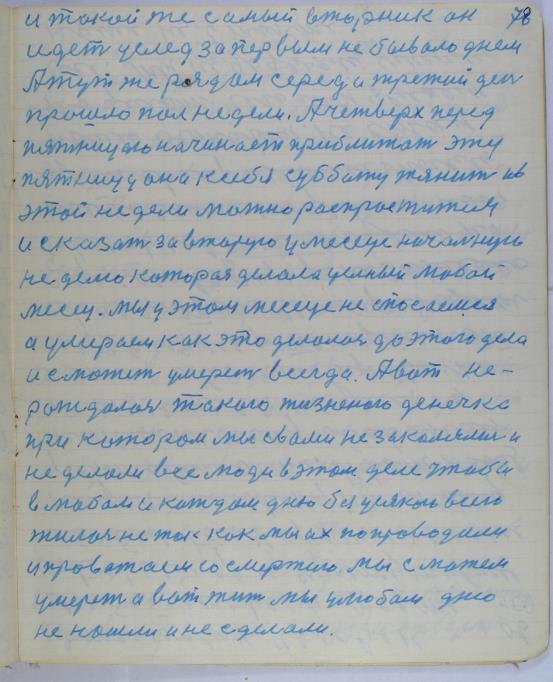 и такой же самый вторник он 78
идет услед за первым не бывало днем
А тут же рядом середа третий ден
прошло пол недели. А четверх перед
пятницою начинает приближат эту
пятницу она к себя субботу тянит и в
этой недели можно распроститися
и сказат за вторую у месеце началную
неделю которая делала целный любой
месец. мы у этом месеце не спосаемся
а умираем как это делалос до этого дела
и сможет умерет всегда. А вот не-
рождалос такого жизненого денечка
при котором мы свами не закалялис и
не делали все люди в этом деле чтобы
в любом и каждом дню без усякого всего
жилос не так как мы их попроводали
и проважаем со смертю. мы сможем
умерет а вот жит мы у любом дню
не нашли и не сделали.